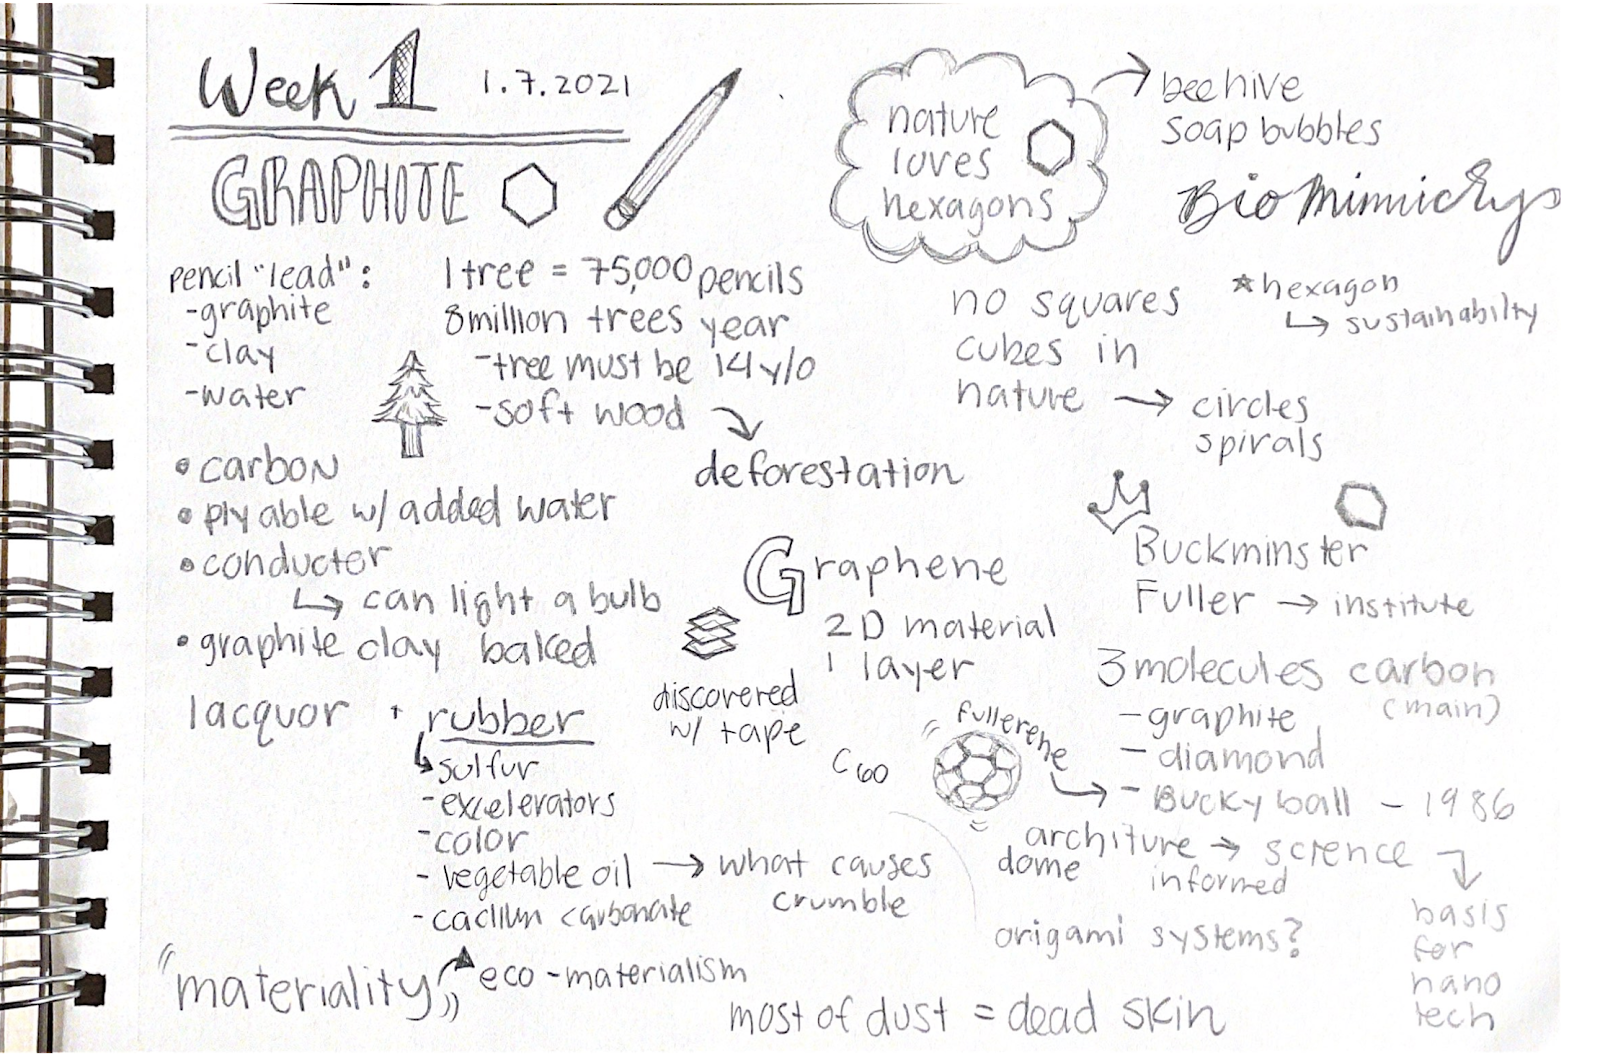 Week 1 1.7.2021
GRAPHITE
pencil "lead":
-graphite
-clay
-water
1 tree = 75,000 pencils
8 million trees year
-tree must be 14 y/o
-soft wood
deforestation
• carbon
• plyable w/ added water
• conductor
can light a bulb
• graphite clay baked
lacquor + rubber
sulfur
-excelerators
-color
- vegetable oil → what causes
crumble
- caclium carbonate
"materiality" eco-materialism
nature
loves
hexagons
→ beehive
soap bubbles
BioMimicry
* hexagon
↳ sustainabilty
no squares
cubes in
nature → circles
spirals
Graphene
2D material
1 layer
discovered
w/ tape
Buckminster
Fuller → institute
3 molecules carbon
(main)
-graphite
- diamond
- Bucky ball - 1986
"fullerene"
C60
architure → science
dome informed
basis
for
nano
tech
origami systems?
most of dust = dead skin